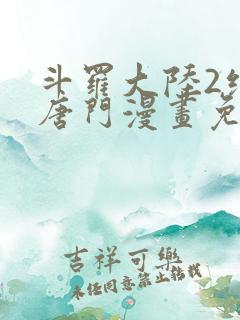 斗羅大陸2
唐門漫畫免
吉祥可樂
未經同意禁止轉載